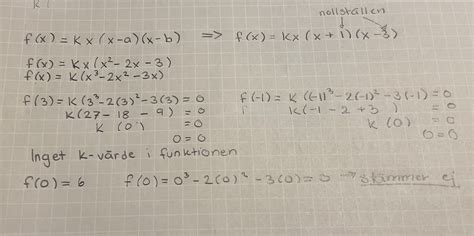 nollställen
f(x) = Kx(x-a)(x-b) ⇒ f(x) = Kx(x+1)(x-3)
f(x) = Kx(x²-2x-3)
f(x) = K(x³-2x²-3x)
f(3) = K(3³-2(3)²-3(3) = 0 f(-1) = K((-1)³-2(-1)²-3(-1) = 0
K(27-18-9) = 0 K(-1-2+3) = 0
K(0) = 0 K(0) = 0
0 = 0 0 = 0
Inget K-värde i funktionen
f(0) = 6 f(0) = 0³-2(0)²-3(0) = 0 → stämmer ej